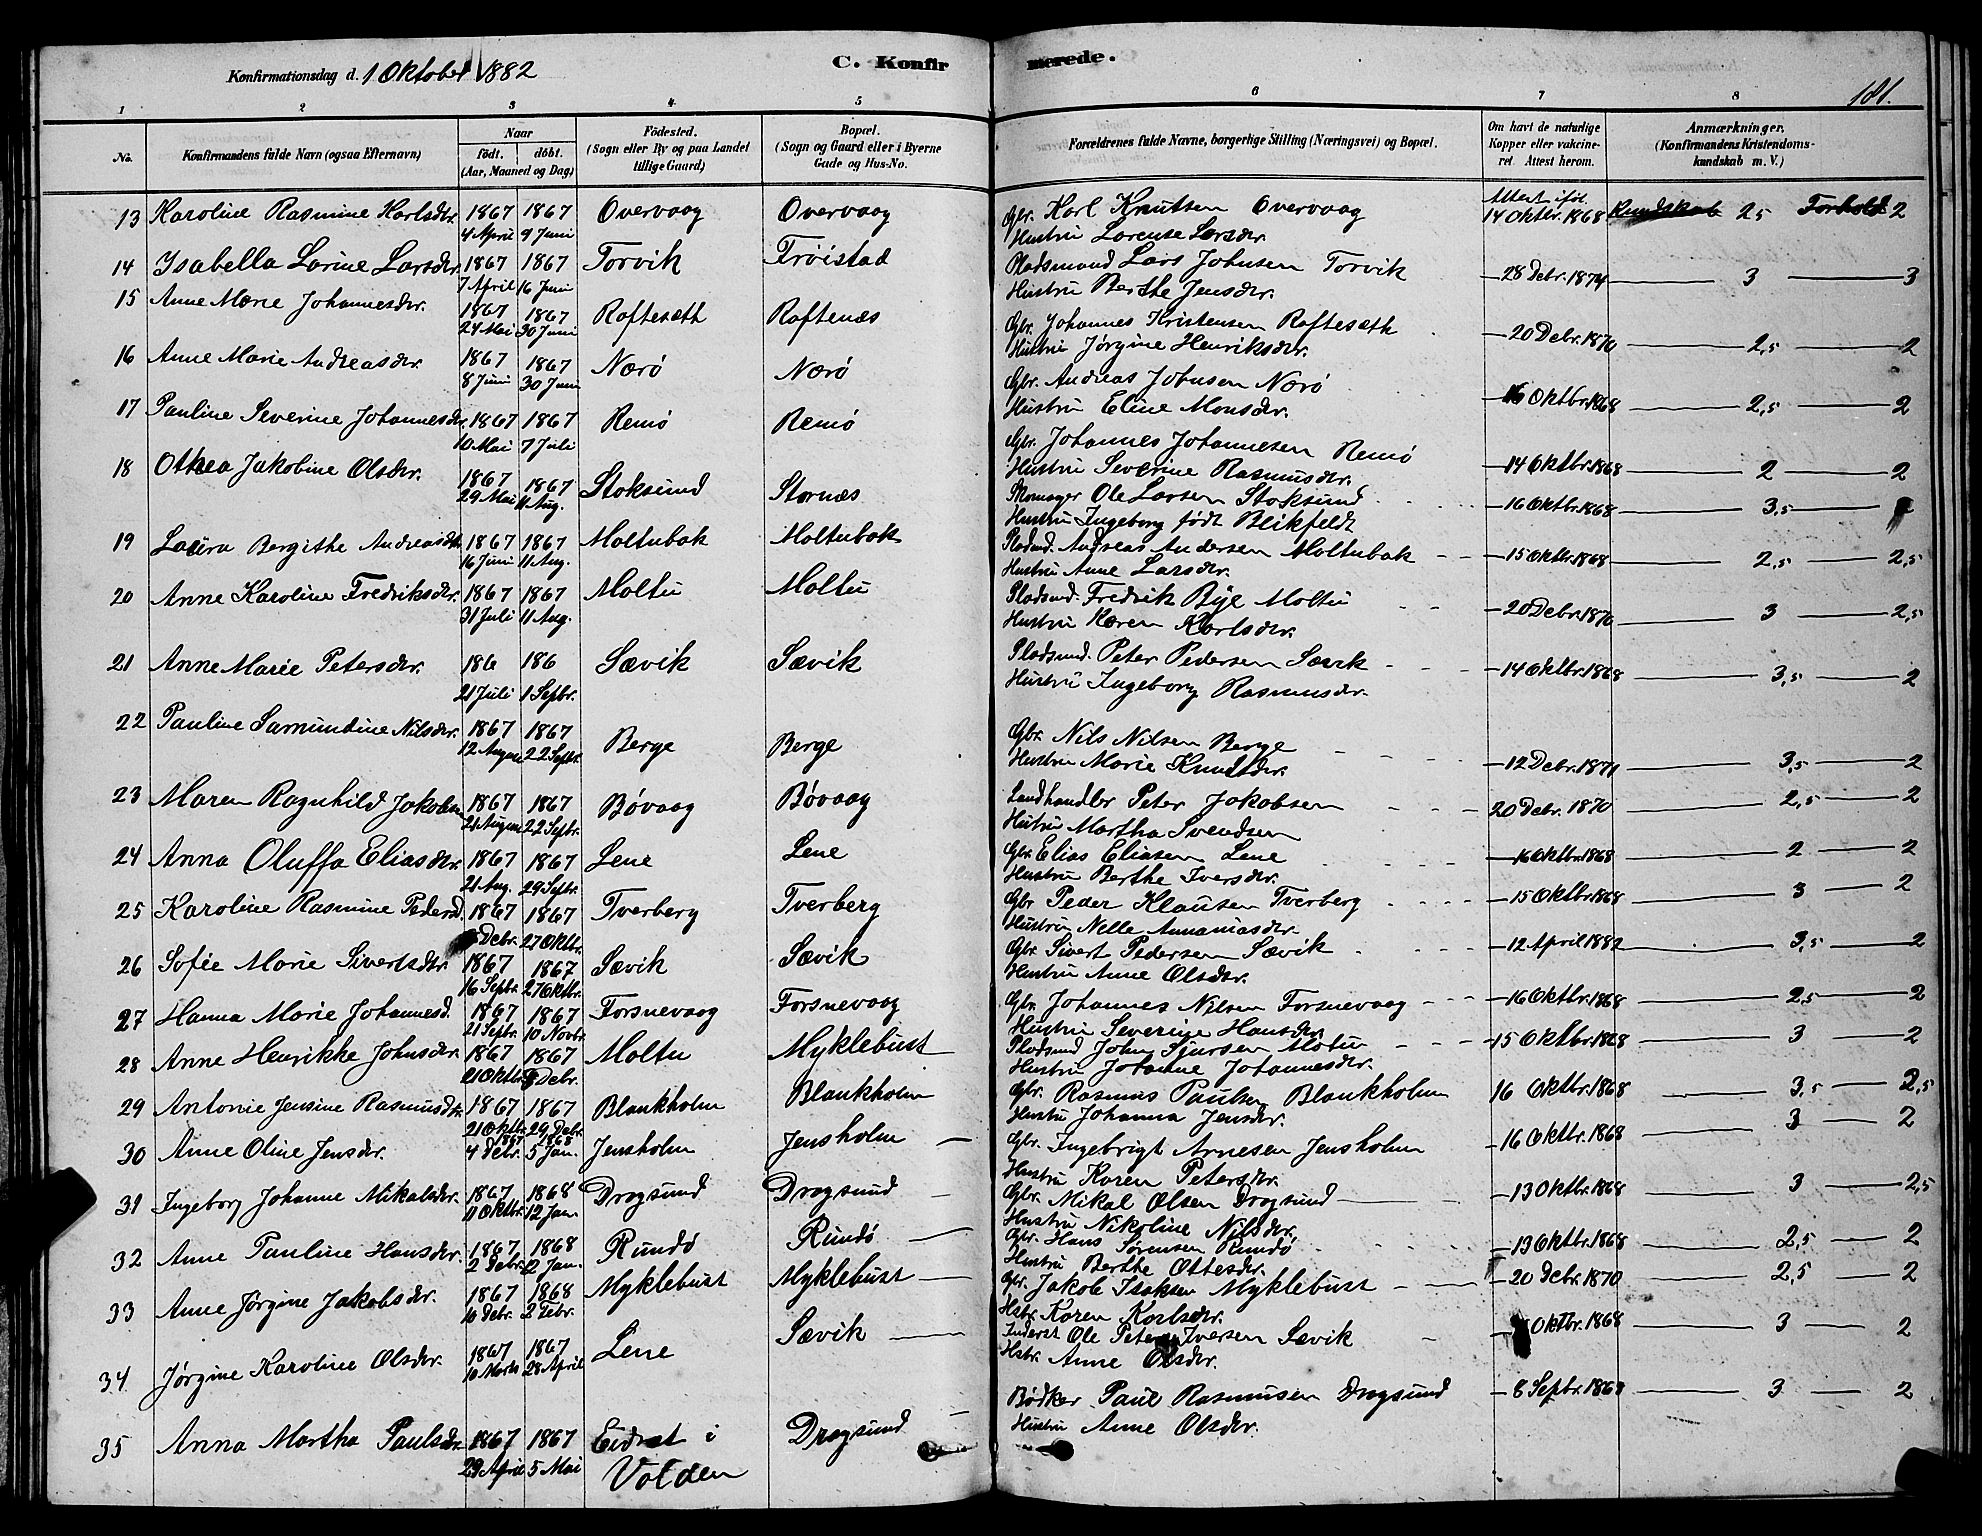 Konfirmationsdag d. 1 Oktober 1882
C. Konfirmerede.
181.
1 2 3 4 5 6 7 8
No. Konfirmandens fulde Navn (ogsaa Efternavn) Naar født. døbt. (Aar, Maaned og Dag) Fødested. (Sogn eller By og paa Landet tillige Gaard) Bopæl. (Sogn og Gaard eller i Byerne Gade og Hus-No. Forældrenes fulde Navne, borgerlige Stilling (Næringsvei) og Bopæl. Om havt de naturlige Kopper eller vakcineret. Attest herom. Anmærkninger. (Konfirmandens Kristendomskundskab m. V.)
13 Karoline Rasmine Karlsdtr. 1867 1867 Overvaag Overvaag Gbr. Karl Knutsen Overvaag Attest 14 Oktbr. 1868 Kundskab 2,5 Forhold 2
4 April 9 Juni Hustru Lorense Larsdtr.
14 Ysabella Larine Larsdtr. 1867 1867 Torvik Frøistad Pladsmand Lars Johnsen Torvik 28 Debr. 1874 3 3
7 April 16 Juni Hustru Berthe Jensdtr.
15 Anne Marie Johannesdtr. 1867 1867 Raftesæth Raftenæs Gbr. Johannes Kristensen Raftesæth 20 Debr. 1870 2,5 2
24 Mai 30 Juni Hustru Jørgine Henriksdtr.
16 Anne Marie Andreasdtr. 1867 1867 Nærø Nærø Gbr. Andreas Johnsen Nærø 16 Oktbr. 1868 2,5 2
8 Juni 30 Juni Hustru Eline Monsdtr.
17 Pauline Severine Johannesdtr 1867 1867 Remø Remø Gbr. Johannes Johannesen Remø 14 Oktbr. 1868 2 2
10 Mai 7 Juli Hustru Severine Rasmusdtr.
18 Othea Jakobine Olsdtr. 1867 1867 Stoksund Stornæs Skomager Ole Larsen Stoksund 16 Oktbr. 1868 3,5
29 Mai 11 Aug. Hustru Ingeborg født Blikfeldt
19 Laura Bergithe Andreasdtr. 1867 1867 Moltubak Moltubak Pladsmd. Andreas Andersen Moltubak 15 Oktbr. 1868 2,5 2,5
16 Juni 11 Aug. Hustru Anne Larsdtr.
20 Anne Karoline Fredriksdtr. 1867 1867 Moltu Moltu Pladsmd. Fredrik Bye Moltu 20 Debr. 1870 3 2,5
31 Juli 11 Aug. Hustru Karen Karlsdtr.
21 Anne Marie Petersdtr. 186 186 Sævik Sævik Pladsmd. Peter Pedersen Sævik 14 Oktbr. 1868 3,5 2
21 Juli 1 Septbr. Hustru Ingeborg Rasmusdtr.
22 Pauline Samundine Nilsdtr. 1867 1867 Berge Berge Gbr. Nils Nilsen Berge 12 Debr. 1871 3,5 2
12 August 22 Septbr. Hustru Marie Knudsdtr.
23 Maren Ragnhild Jakobsen 1867 1867 Bøvaag Bøvaag Landhandler Peter Jakobsen 20 Debr. 1870 2,5 2
21 August 22 Septbr. Hustru Martha Svendsen
24 Anna Oluffa Eliasdtr. 1867 1867 Lene Lene Gbr. Elias Eliasen Lene 16 Oktbr. 1868 2 2
21 Aug. 29 Septbr. Hustru Berthe Iversdtr.
25 Karoline Rasmine Pedersd. 1867 1867 Tverberg Tverberg Gbr Peder Klausen Tverberg 15 Oktbr. 1868 3 2
Debr. 27 Oktbr. Hustru Nelle Annaniasdtr.
26 Sofie Marie Sivertsdtr. 1867 1867 Sævik Sævik Gbr. Sivert Pedersen Sævik 12 April 1882 3,5 2
16 Septbr. 27 Oktbr. Hustru Anne Olsdtr.
27 Hanna Marie Johannesd. 1867 1867 Forsnevaag Forsnevaag Gbr. Johannes Nilsen Forsnevaag 16 Oktbr. 1868 2,5 2
21 Septbr. 10 Novbr. Hustru Severine Hansdtr.
28 Anne Henrikke Johnsdtr. 1867 1867 Moltu Myklebust Pladsmd John Sjursen Moltu 15 Oktbr. 1868 3 2
21 Oktbr. 8 Debr. Hustru Johanne Johannesdtr.
29 Antonie Jensine Rasmusdtr 1867 1867 Blankholm Blankholm Gbr. Rasmus Paulsen Blankholm 16 Oktbr. 1868 3,5 2,5
21 Oktbr. 29 Debr. Hustru Johanna Jensdtr.
30 Anne Oline Jensdtr. 1867 1868 Jensholm Jensholm Gbr. Ingebrigt Arnesen Jensholm 16 Oktbr. 1868 3 2
4 Debr. 5 Jan. Hustru Karen Petersdtr.
31 Ingeborg Johanne Mikalsdtr. 1867 1868 Dragsund Dragsund Gbr. Mikal Olsen Dragsund 13 Oktbr. 1868 3 2,5
11 Oktbr. 12 Jan Hustru Nikoline Nilsdtr.
32 Anne Pauline Hansdtr. 1867 1868 Rundø Rundø Gbr. Hans Sørensen Rundø 13 Oktbr. 1868 2,5 2
2 Debr. 12 Jan. Hustru Berthe Ottesdtr.
33 Anne Jørgine Jakobsdtr. 1867 1868 Myklebust Myklebust Gbr. Jakob Isaksen Myklebust 20 Debr. 1870 2,5 2
10 Debr. 2 Febr. Hstr. Karen Karlsdtr.
34 Jørgine Karoline Olsdtr. 1867 1867 Lene Sævik Inderst Ole Peter Iversen Sævik Oktbr. 1868 3 2
10 Marts 28 April Hstr. Anne Olsdtr.
35 Anna Martha Paulsdtr 1867 1867 Eidset i Dragsund Bødker Paul Rasmusen Dragsund 8 Septbr. 1868 3 2
29 April 5 Mai Volden Hustru Anne Olsdtr.